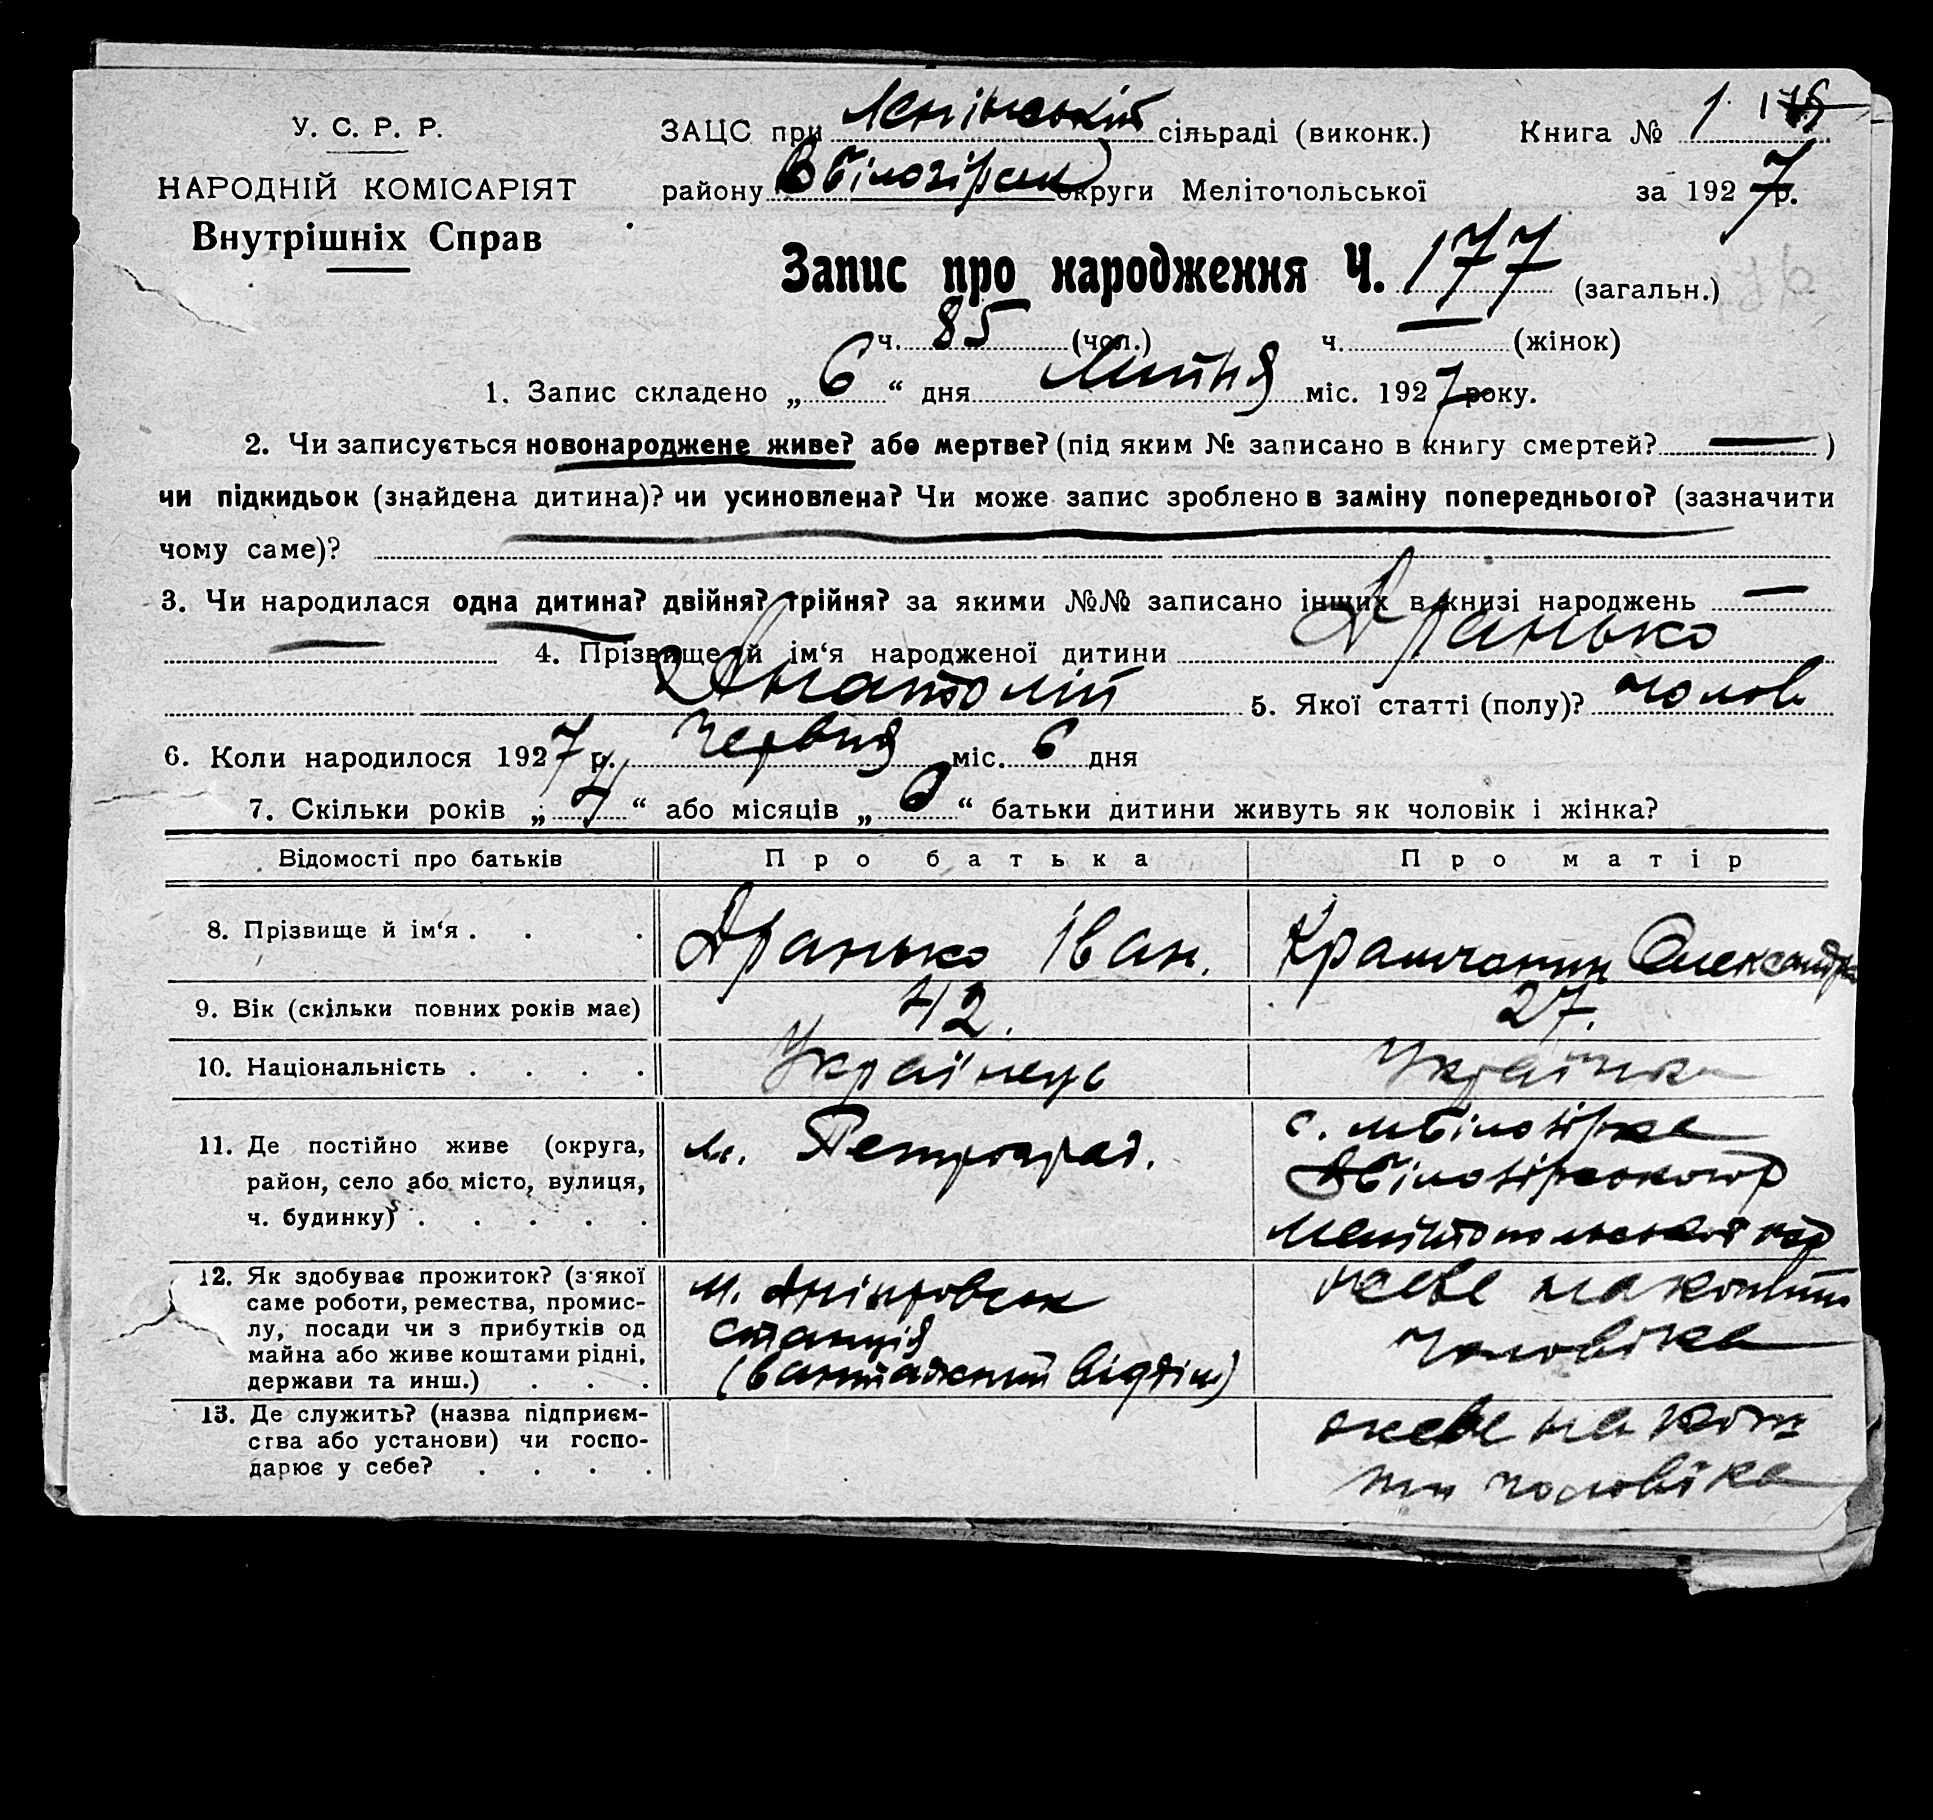 У. С. Р. Р.
НАРОДНІЙ КОМІСАРІЯТ
Внутрішніх Справ
ЗАЦС при Ленінській сільраді (виконк.) Книга № 1
району округи Мелітопольської за 1927 р.
Запис про народження Ч. 177 (загальн.)
ч. 85 (чол.) ч. — (жінок)
1. Запис складено „ 6 “ дня Липня міс. 1927 року.
2. Чи записується новонароджене живе? або мертве? (під яким № записано в книгу смертей? — )
чи підкидьок (знайдена дитина)? чи усиновлена? Чи може запис зроблено в заміну попереднього? (зазначити
чому саме)?
3. Чи народилася одна дитина? двійня? трійня? за якими №№ записано інших в книзі народжень —
— 4. Прізвище й ім‘я народженої дитини Дранько
Анатолій 5. Якої статті (полу)? чолов
6. Коли народилося 1927 р. Червня міс. 6 дня
7. Скільки років „ “ або місяців „ “ батьки дитини живуть як чоловік і жінка?
Відомості про батьків Про батька Про матір
8. Прізвище й ім‘я . . . Дранько Іван. Олександра
9. Вік (скільки повних років має) 42. 27.
10. Національність . . . . Українець Українка
11. Де постійно живе (округа,
район, село або місто, вулиця,
ч. будинку) . . . . .
м. Петроград.
с. мБілозірка
12. Як здобуває прожиток? (з якої
саме роботи, ремества, промис-
лу, посади чи з прибутків од
майна або живе коштами рідні,
держави та инш.) . . .
м. Дніпровськ
станція
(вантажний відділ)
живе на кошти
чоловіка
13. Де служить? (назва підприєм-
ства або установи) чи госпо-
дарює у себе? . . . .
живе на кош
ти чоловіка